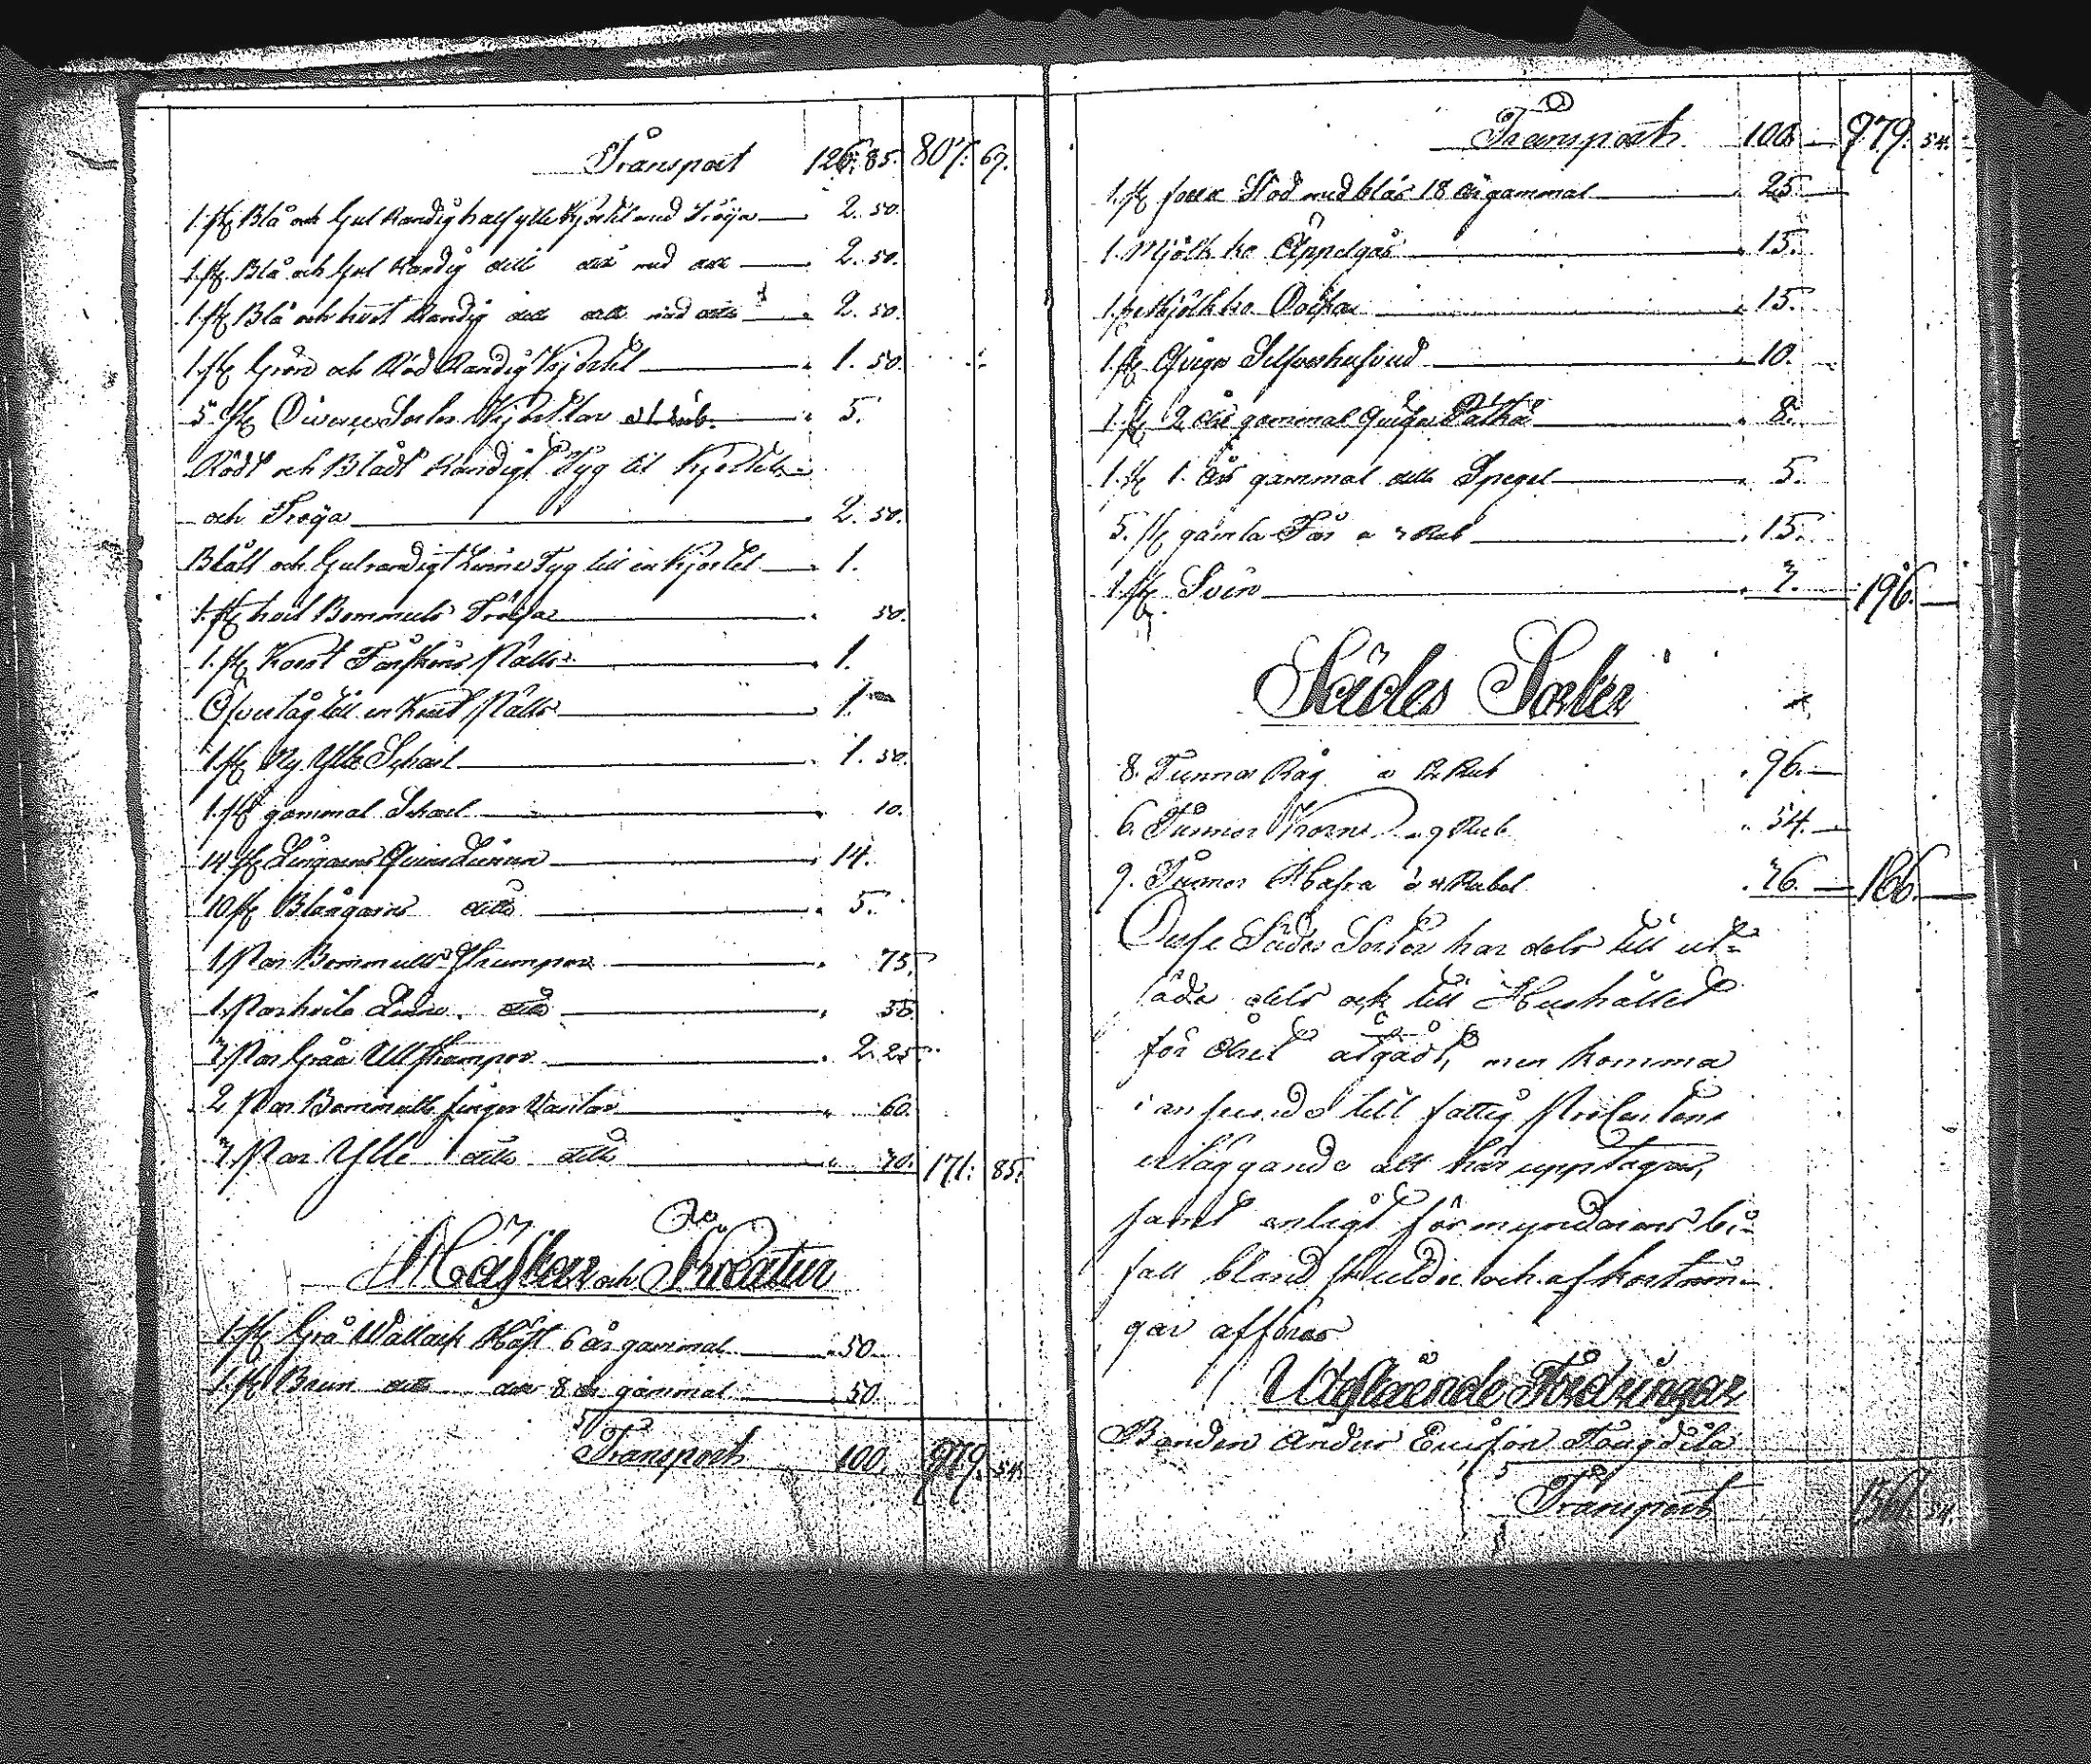 Transport 126. 85. 807. 69.
1. st Blå och Gul Randig half ylle Kjortel med Tröja 2. 50.
1. st Blå och Gul Randig ditt ditt med ditt 2. 50.
1. st Blå och hvit Randig ditt ditt med ditt 2. 50.
1. st Grön och Röd Randig Kjortel 1. 50.
5 st Diverse Sorter Kjortlar a 1 Rub. 5.
Rödt och Blådt Randigt Tyg til Kjortel
och Tröja 2. 50.
Blått och Gulrandigt Linne Tyg till en Kjortel 1.
1. st hvit Bommuls Tröja 50.
1. st Kort Fårskins 1.
till en Kort 1.
1. st Ny Ylle Schal 1. 50.
1. st gammal Schal 10.
14 st Lingarns Qvins Linnen 14.
10 st Blångarns ditto 5.
1. Par Bommulls Strumpor 75.
1. Par hvita Linne ditto 50.
3. Par Gråa Ull Strumpor 2. 25.
2 Par Bommulls finger Vantar 60.
3. Par Ylle ditto ditto 70. 171. 85.
Hästar och Kreatur
1. st Grå Wallack Häst 6 år gammal 50
1. st Brun ditto ditto 8 år gammal 50
Transport 100. 979. 54.
Transport 100 979. 54.
1. st Stod med bläs 18 år gammal 25
1. Mjölk ko Äppelgås 15.
1. st Mjölk ko Docka 15.
1. st Qviga Silfverhufvud 10.
1. st 2 års gammal Qviga 8.
1. st 1. års gammal ditto Spegel 5.
5. st gamla Får a 3 Rub 15.
1. st Svin 3. 196.
Sädes Sorter
8. Tunnor Råg a 12 Rub 96.
6. Tunnor Korn a 9 Rub 54.
9. Tunnor Hafra a 4 Rubel 36. 186.
Desse Sädes Sorter har dels till ut-
säde dels ock till Hushållet
för året åtgådt, men komma
i anseende till fattig Procentens
utläggande att här upptagas,
samt enligt förmyndarens bi-
fall bland skulder och afkortnin-
gar afföras
Utestående Fordringar
Bonden Anders Ericson
Transport 54.